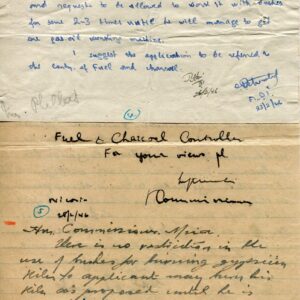 and requests to be allowed to work it with bushes
for some 2-3 times until he will manage to get
one gas oil working machine.
I suggest the application to be referred to
the Contr. of Fuel and charcoal.
23/2/46
(4)
Fuel & Charcoal Controller
For your views pl
Commissioner
Nicosia
(5)
Hon. Commissioner, Nicosia
There is no restriction in the
use of bushes for burning gypsum
Kilns to applicant may burn his
Kiln as proposed until he is